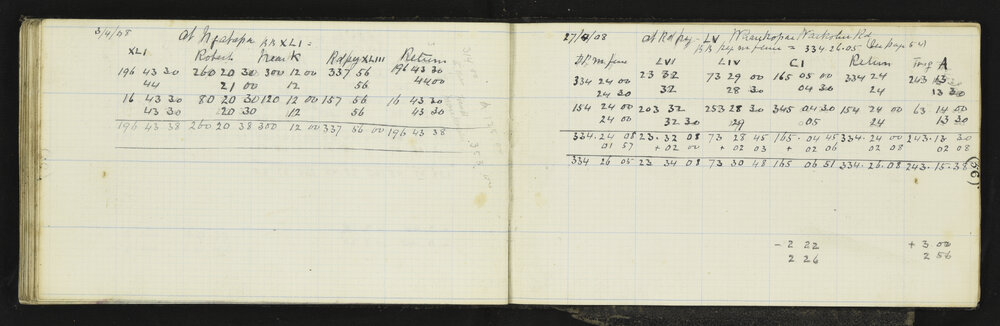 3/4/08 at Ngatapa XLI =
XLI Robert Near K Rdpy XLIII Return
196 43 30 260 20 30 300 12 00 337 56 196 43 30
44 21 00 12 56 44 00
16 43 30 80 20 30 120 12 00 157 56 16 43 30
43 30 20 30 12 56 43 30
196 43 38 260 20 38 300 12 00 337 56 00 196 43 38
27/ /08 at Rdpy - LV
= 334.26.05 (See page 54)
LVI LIV CI Return Trig A
334 24 00 23 32 73 29 00 165 05 00 334 24 243 13
24 30 32 28 30 04 30 24 13 30
154 24 00 203 32 253 28 30 345 04 30 154 24 00 63 14 00
24 00 32 30 29 05 24 13 30
334. 24 08 23. 32 08 73 28 45 165. 04 45 334. 24 00 243. 13 30
01 57 + 02 00 + 02 03 + 02 06 02 08 02 08
334 26 05 23 34 08 73 30 48 165 06 51 334. 26. 08 243. 15. 38
(56)
- 2 22 + 3 00
2 26 2 56